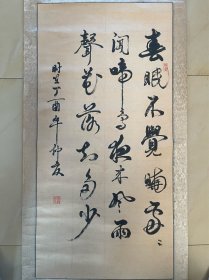 春眠不覺曉處〻
聞啼鳥夜来風雨
聲花落知多少
丁酉年仲夏